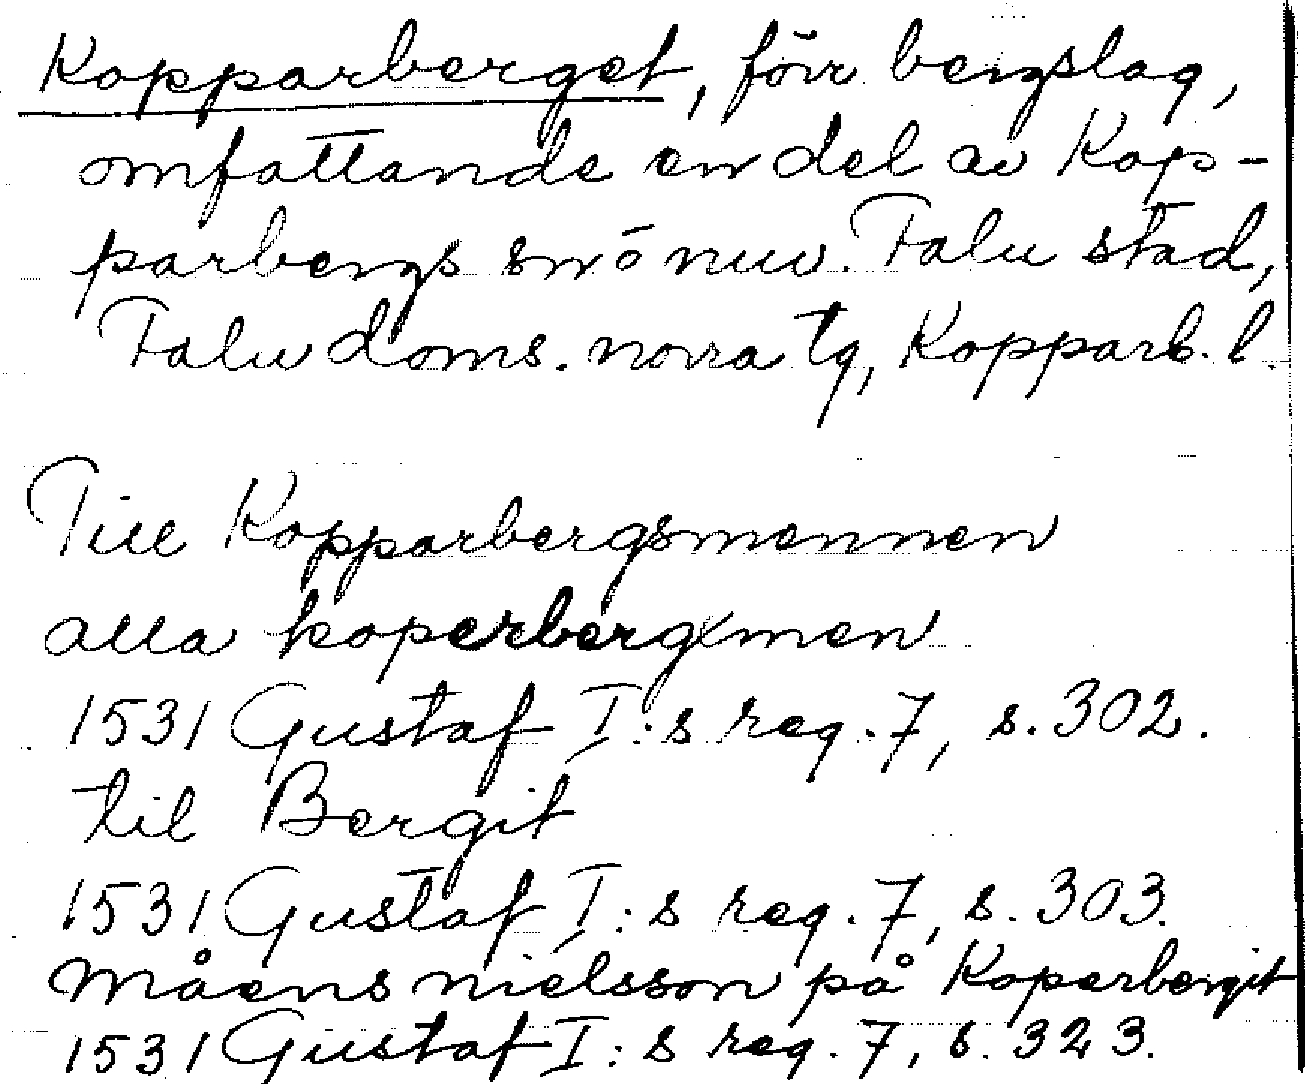 Kopparberget, förr bergslag,
omfattande en del av Kop-
parbergs sn o nuv. Falu stad,
Falu doms. norra tg, Kopparb. l.
Till Kopparbergsmennen
alla koperbergxmen
1531 Gustaf I:s reg. 7, s. 302.
til Bergit
1531 Gustaf I:s reg. 7, s. 303.
Måens nielsson på Koperbergit
1531 Gustaf I:s reg. 7, s. 323.